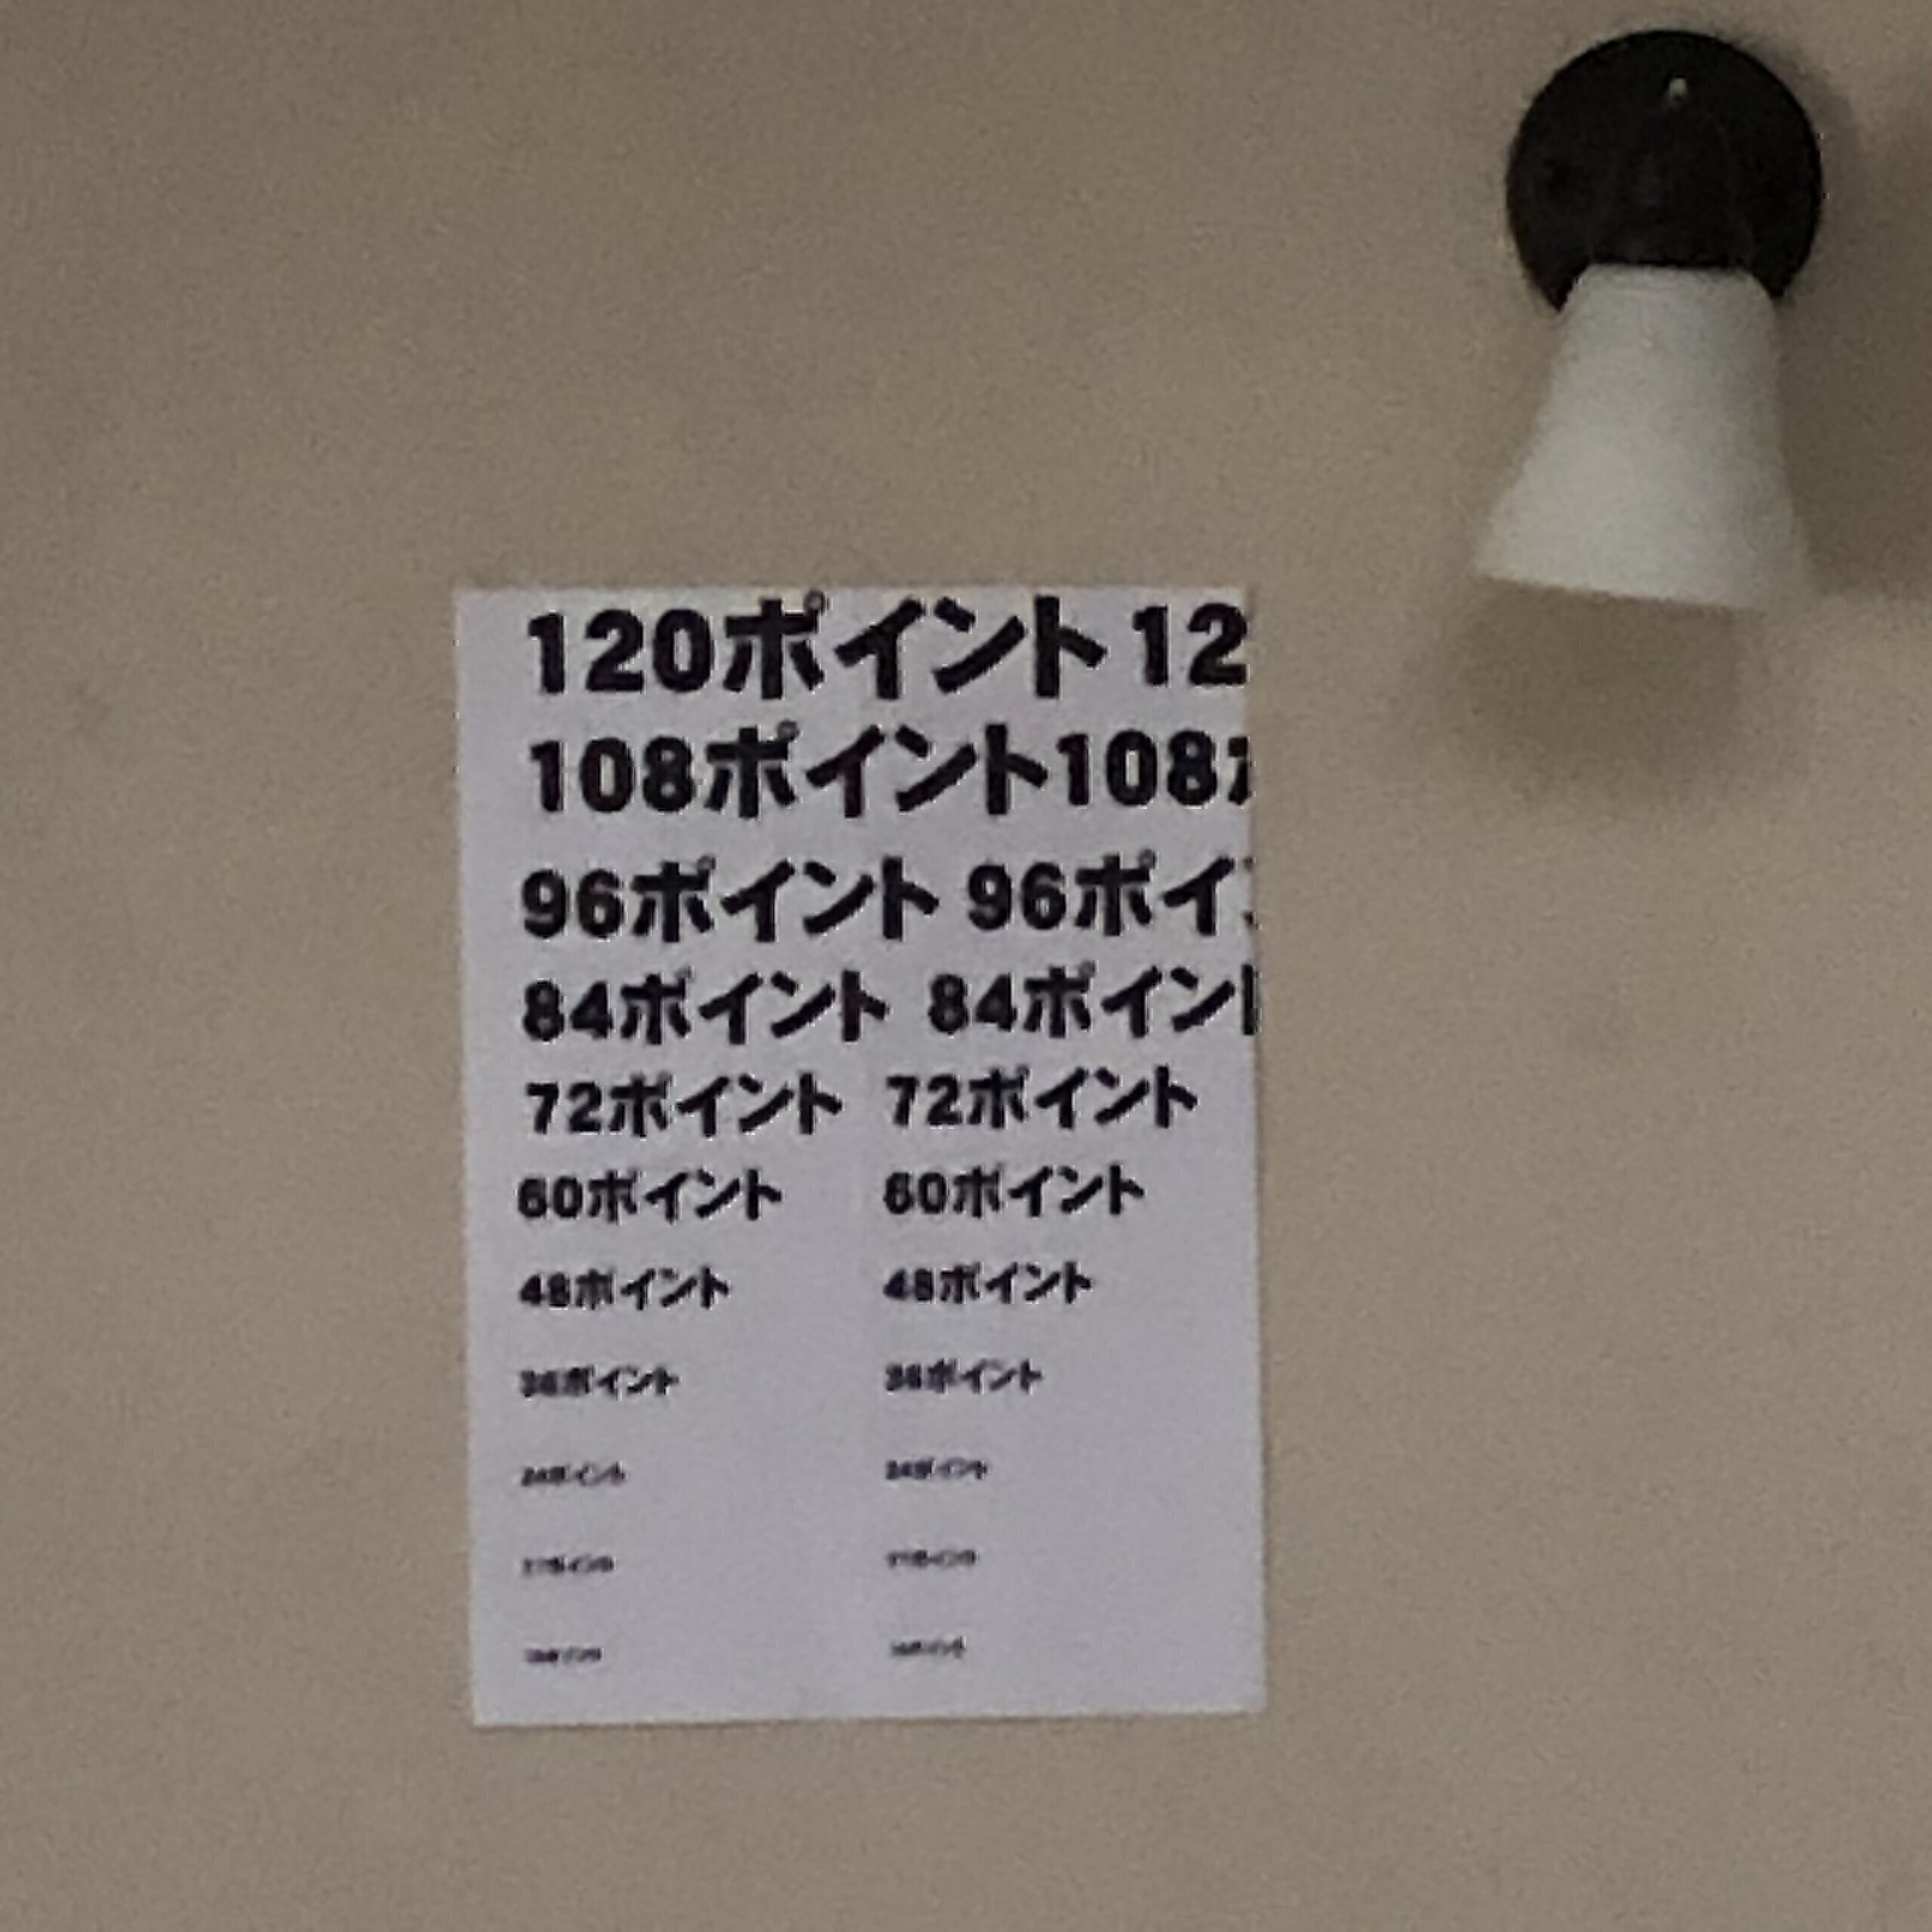 120ポイント 12
108ポイント108
96ポイント 96ポイ
84ポイント 84ポイント
72ポイント 72ポイント
60ポイント 60ポイント
48ポイント 48ポイント
36ポイント 36ポイント
24ポイント 24ポイント